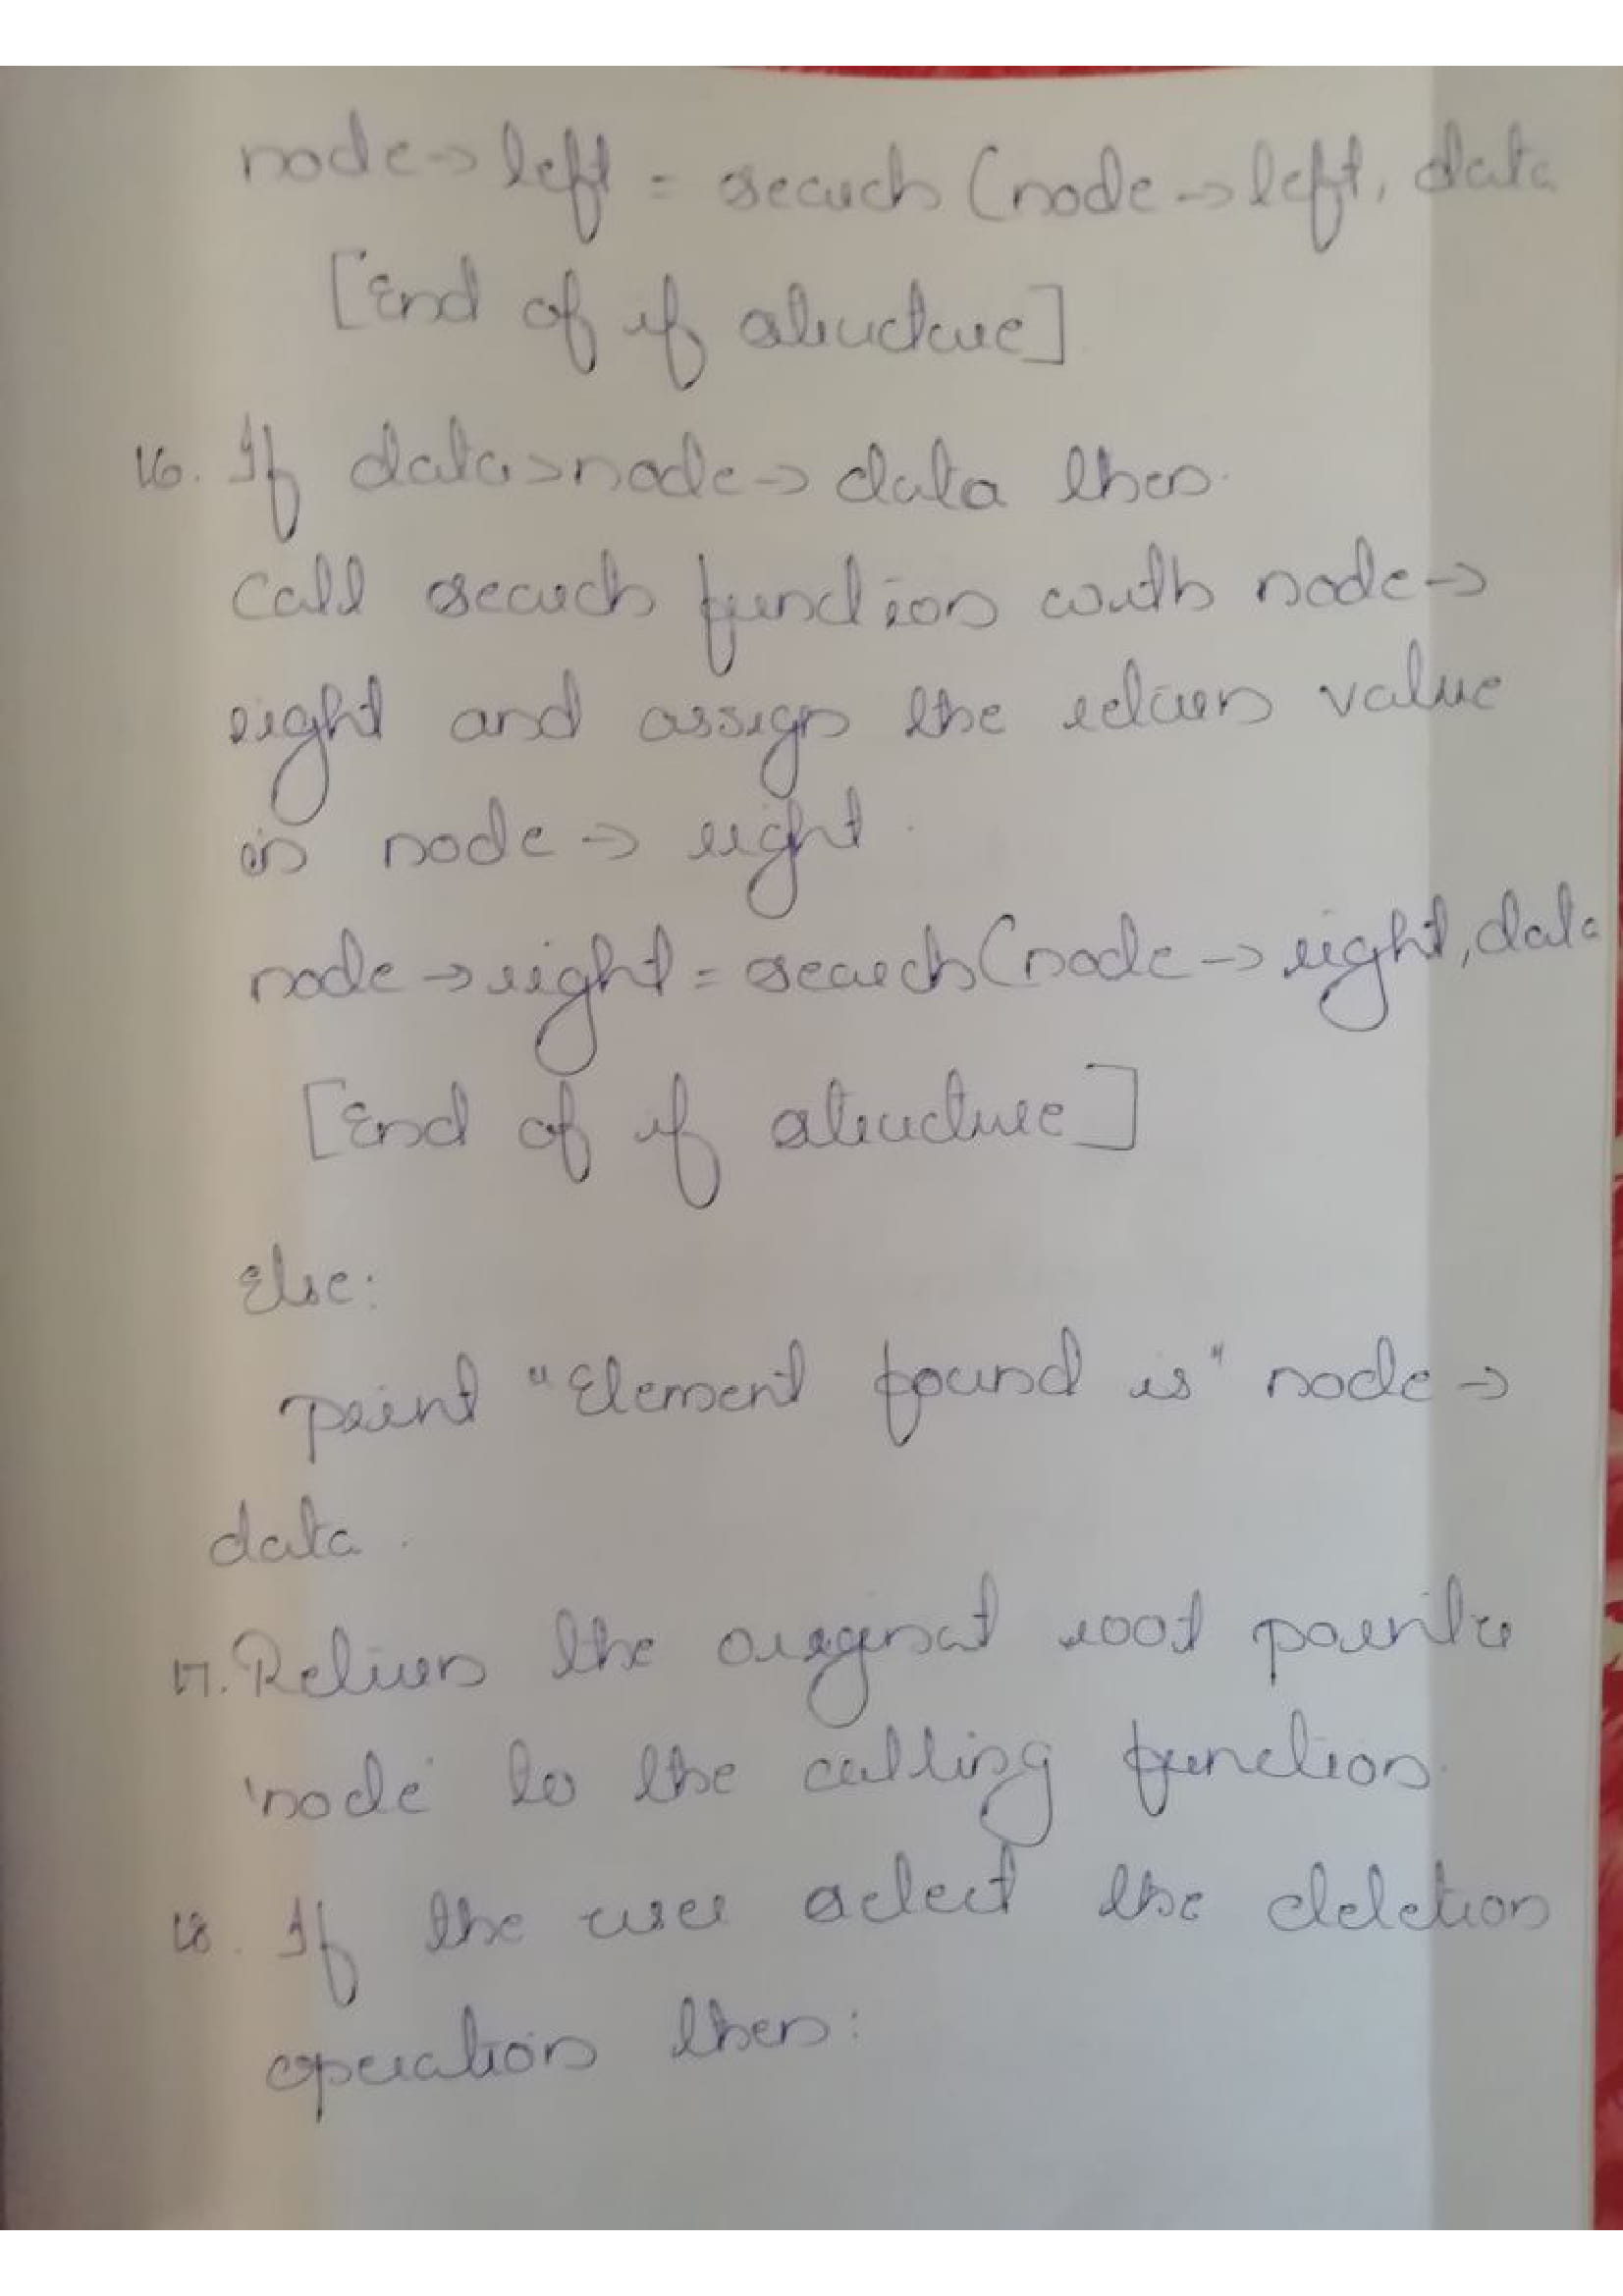 node→left = search (node→left, data
[End of if structure]
16. If data>node→data then.
call search function with node→
right and assign the return value
in node→right.
node→right = search(node→right, data
[End of if structure]
Else:
print "Element found is" node→
data.
17. Return the original root pointer
'node' to the calling function.
18. If the user select the deletion
operation then: